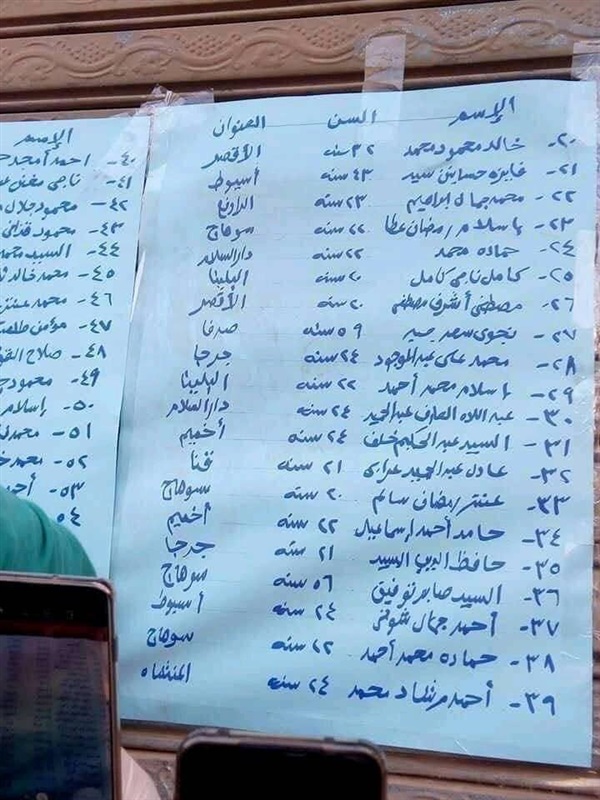 الإسم السن العنوان
٢٠- خالد محمود محمد ٣٢ سنه الأقصر
٢١- فايزه حسانين سيد ٤٣ سنه أسيوط
٢٢- محمد جمال ابراهيم ٢٣ سنه
٢٣- إسلام رمضان عطا ٢٢ سنه سوهاج
٢٤- حماده محمد ٢٢ سنه دار السلام
٢٥- كامل ناجى كامل ٢٠ سنه البلينا
٢٦- مصطفى أشرف مصطفى ٢٠ سنه الأقصر
٢٧- نجوى سعد ٥٩ سنه صدفا
٢٨- محمد على عبدالموجود ٢٤ سنه جرجا
٢٩- إسلام محمد أحمد ٢٢ سنه البلينا
٣٠- عبد اللاه العارف عبد الحميد ٢٤ سنه دار السلام
٣١- السيد عبد الحليم خلف ٢٤ سنه أخميم
٣٢- عادل عبد الحميد عرابى ٢١ سنه قنا
٣٣- عنتر رمضان سالم ٢٠ سنه سوهاج
٣٤- حامد أحمد إسماعيل ٢٢ سنه أخميم
٣٥- حافظ السيد ٢١ سنه جرجا
٣٦- السيد صابر توفيق ٥٦ سنه سوهاج
٣٧- أحمد جمال شوقى ٢٤ سنه أسيوط
٣٨- حماده محمد أحمد ٢٢ سنه سوهاج
٣٩- أحمد رشاد محمد ٢٤ سنه المنشاه
الإسم
٤٠- احمد امجد
٤١- ناجى
٤٢- محمود جلال
٤٣- محمود
٤٤- السيد محمد
٤٥- محمد خالد
٤٦- محمد
٤٧- مؤمن
٤٨- صلاح
٤٩- محمود
٥٠- إسلام
٥١- محمد
٥٢- محمد
٥٣-
٥٤